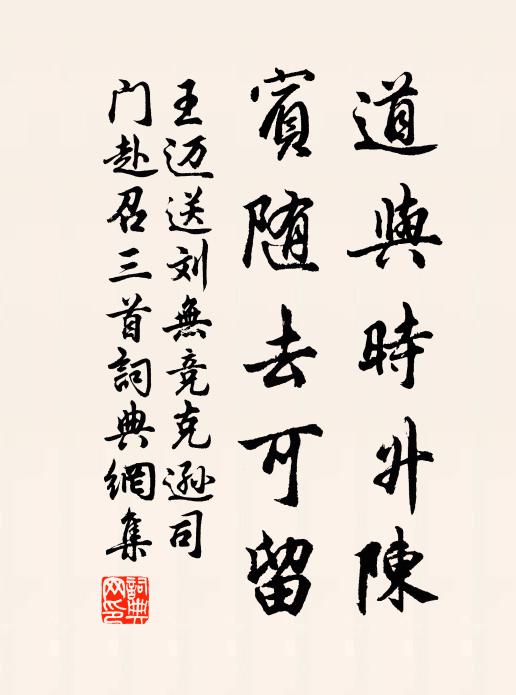 道與時升陳
賓随去可留
王迈送刘無竞克遜司
门赴召三首詞典網集
詞典
网印